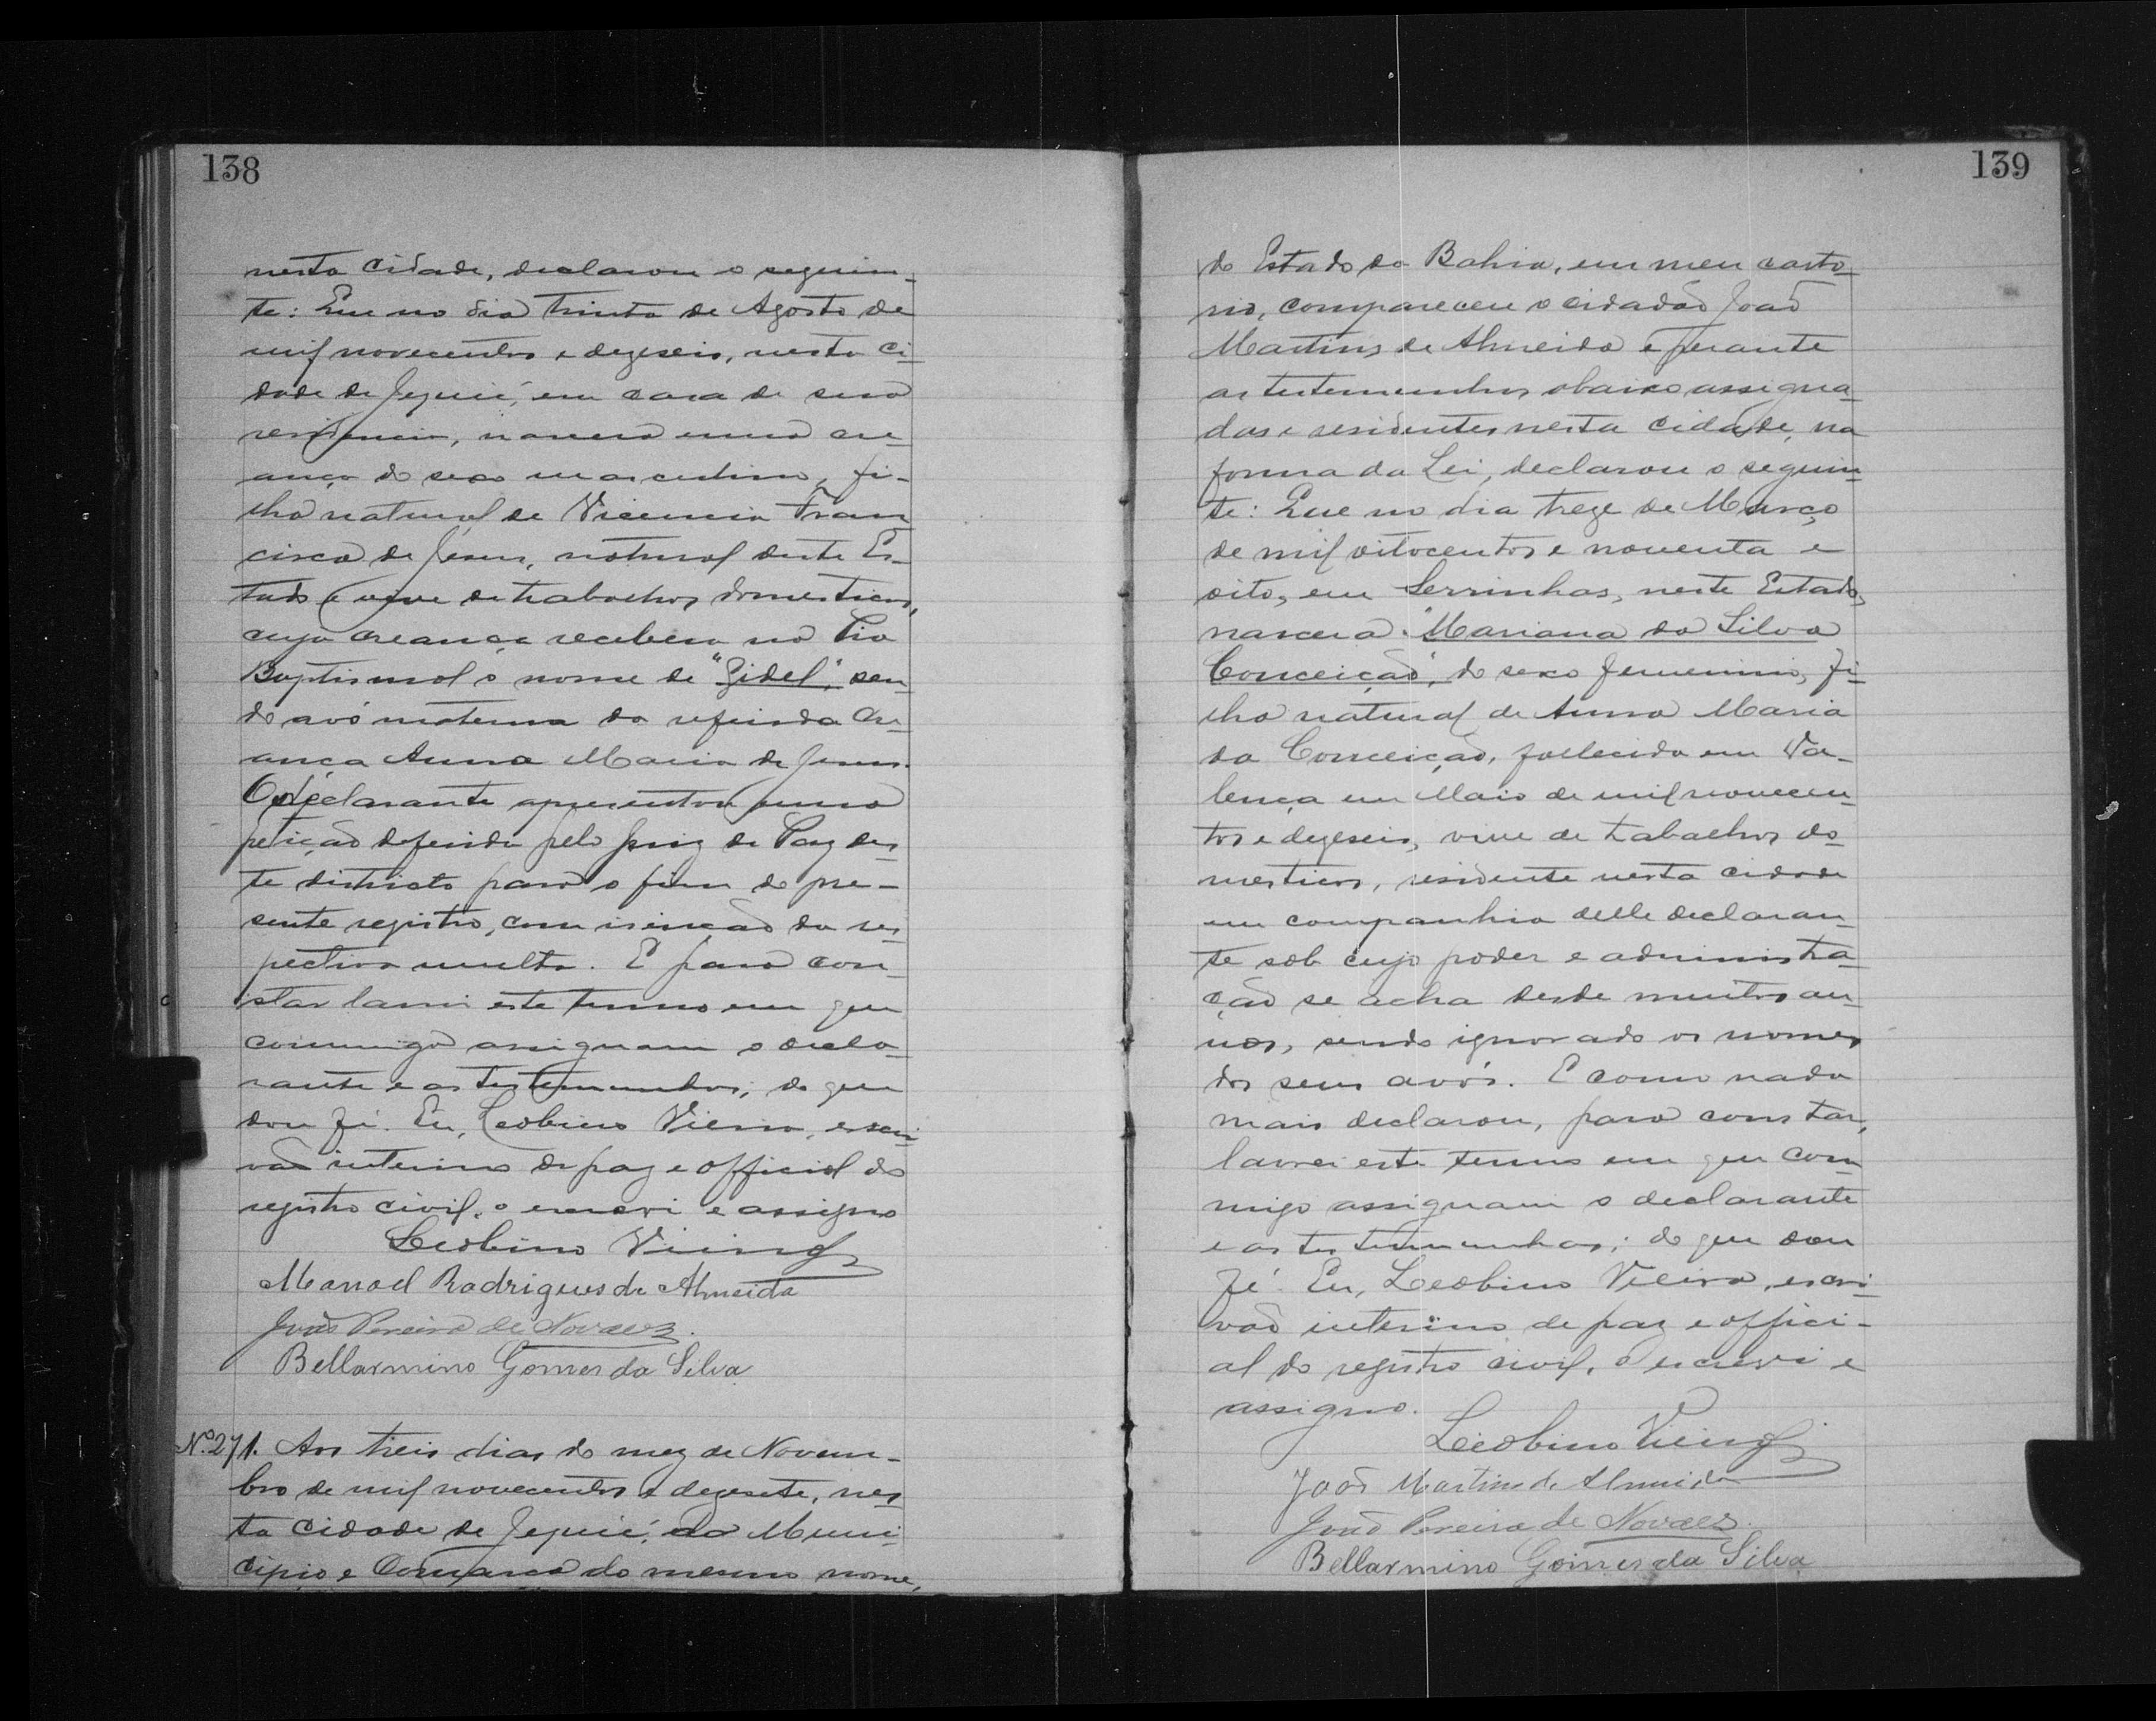 138
nesta cidade, declarou o seguin-
te: Que no dia trinta de Agosto de
mil novecentos e dezeseis, nesta ci-
dade de Jequié, em casa de sua
residencia, nascera uma cre
ança do sexo masculino, fi-
lho natural de Vicencia Fran
cisca de Jesus, natural deste Es-
tado e vive de trabalhos domesticos,
cuja creança recebera na Pia
Baptismal o nome de "Fidel", sen-
do avó materna da referida cre-
ança Anna Maria de Jesus.
O declarante apresentou uma
petição deferida pelo Juiz de Paz des-
te districto para o fim do pre-
sente registro, com isenção da res-
pectiva multa. E para con-
star lavrei este termo em que
commigo assignam o decla-
rante e as testemunhas; do que
dou fé. Eu, Leobino Vieira, escri-
vão interino de paz e official do
registro civil, o escrevi e assigno
Leobino Vieira
Manoel Rodrigues de Almeida
João Pereira de Novaes.
Bellarmino Gomes da Silva
Nº 271. Aos treis dias do mez de Novem-
bro de mil novecentos e dezesete, nes-
ta cidade de Jequié, do Muni-
cipio e Comarca do mesmo nome,
139
do Estado da Bahia, em meu carto-
rio, compareceu o cidadão João
Martins de Almeida e perante
as testemunhas abaixo assigna-
das e residentes nesta cidade, na
forma da Lei, declarou o seguin-
te: Que no dia treze de Março
de mil oitocentos e noventa e
oito, em Serrinhas, neste Estado,
nascera "Mariana da Silva
Conceição", do sexo femenino, fi-
lha natural de Anna Maria
da Conceição, fallecida em Va-
lença em Maio de mil novecen-
tos e dezeseis, vive de trabalhos do-
mesticos, residente nesta cidade
em companhia delle declaran-
te sob cujo poder e administra-
ção se acha desde muitos an-
nos, sendo ignorado os nomes
dos seus avós. E como nada
mais declarou, para constar,
lavrei este termo em que com-
migo assignam o declarante
e as testemunhas; do que dou
fé. Eu, Leobino Vieira, escri-
vão interino de paz e offici-
al do registro civil, o escrevi e
assigno.
Leobino Vieira
João Martins de Almeida
João Pereira de Novaes.
Bellarmino Gomes da Silva